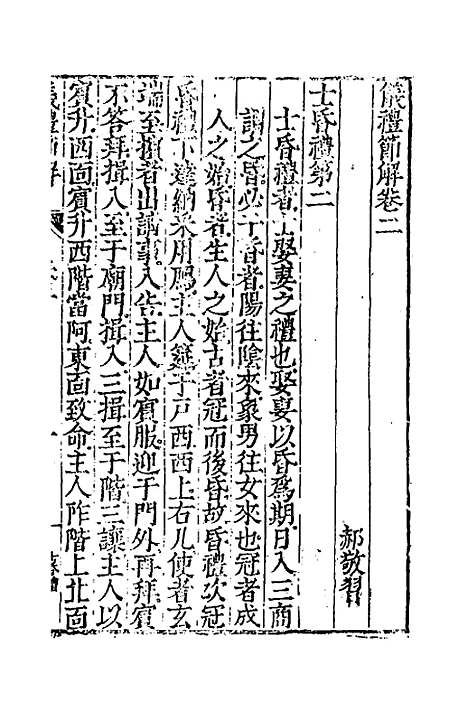 儀禮節解卷二
郝敬習
士昏禮第二
士昏禮者士娶妻之禮也娶妻以昏為期日入三商
謂之昏必于昏者陽往陰來象男往女來也冠者成
人之始昏者生人之始古者冠而後昏故昏禮次冠
昏禮下達納采用鴈主人筵于戶西西上右几使者玄
端至擯者出請事入告主人如賓服迎于門外再拜賓
不答拜揖入至于廟門揖入三揖至于階三讓主人以
賓升西面賓升西階當阿東面致命主人阼階上北面
儀禮節解